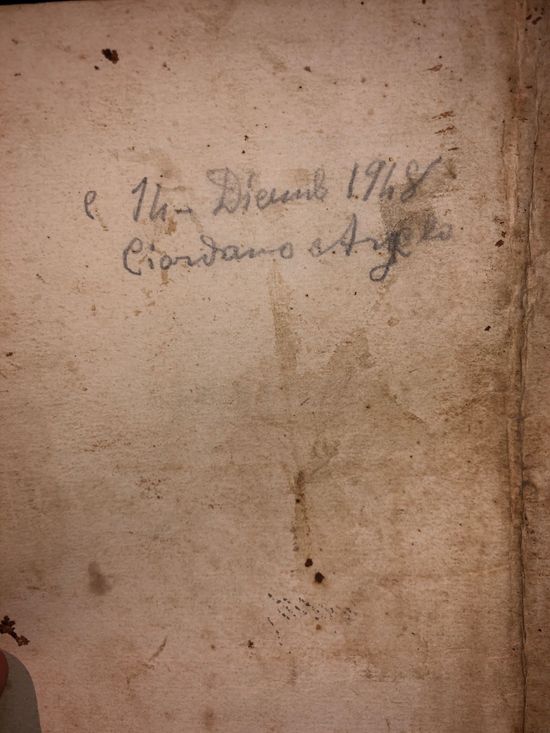 e 14- Dicemb 1948
Giordano Angelo